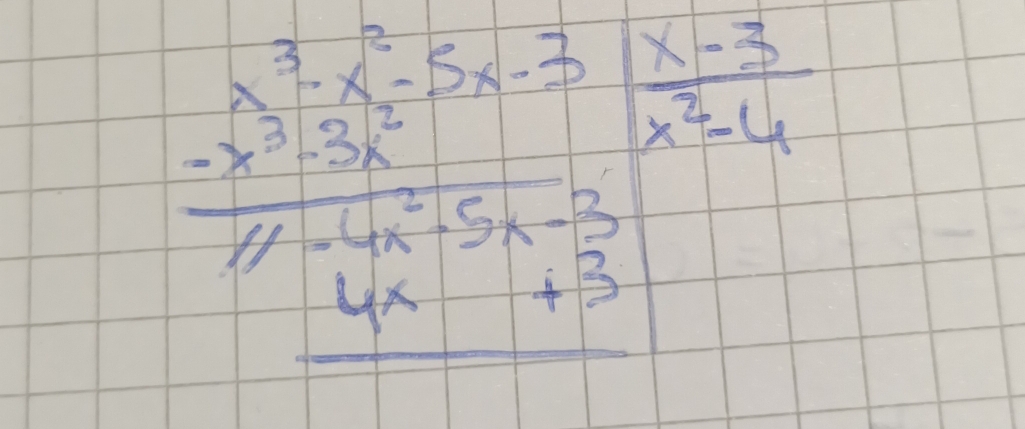 x³ - x² - 5x - 3 | x - 3
-x³ - 3x² | x² - 4
// -4x² - 5x - 3
4x + 3